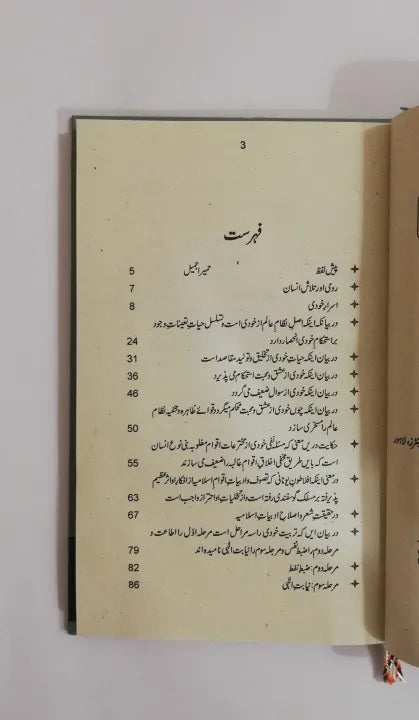 3
فہرست
پیش لفظ حمیرا جمیل 5
رومی اور تلاش انسان 7
اسرار خودی 8
در بیانکہ اینکہ اصل نظام عالم از خودی است و تسلسل حیات تعینات وجود
بر استحکام خودی انحصار دارد 24
در بیان اینکہ حیات خودی از تخلیق و تولید مقاصد است 31
در بیان اینکہ خودی از عشق و محبت استحکام می پذیرد 36
در بیان اینکہ خودی از سوال ضعیف می گردد 46
در بیان اینکہ چوں خودی از عشق و محبت محکم میگردد قوائے ظاہرہ و مخفیہ نظام
عالم را مسخر می سازد 50
حکایت دریں معنی کہ مسئلہ نفی خودی از مخترعات اقوام مغلوبہ بنی نوع انسان
است کہ بایں طریق مخفی اخلاق اقوام غالبہ را ضعیف می سازند 55
در معنی اینکہ افلاطون یونانی کہ تصوف و ادبیات اقوام اسلامیہ از افکار او اثر عظیم
پذیرفتہ بر مسلک گوسفندی رفتہ است و از تخیلات او احتراز واجب است 63
در حقیقت شعر و اصلاح ادبیات اسلامیہ 67
در بیان ایں کہ تربیت خودی را سہ مراحل است مرحلہ اوّل را اطاعت و
مرحلہ دوم را ضبط نفس و مرحلہ سوم را نیابت الٰہی نامیدہ اند 79
مرحلہ دوم: ضبط نفط 82
مرحلہ سوم: نیابت الٰہی 86